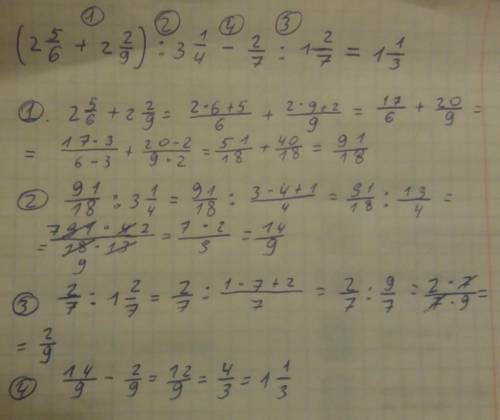 ① ② ④ ③
(2 5/6 + 2 2/9) : 3 1/4 - 2/7 : 1 2/7 = 1 1/3
①. 2 5/6 + 2 2/9 = (2·6+5)/6 + (2·9+2)/9 = 17/6 + 20/9 =
= (17·3)/(6-3) + (20-2)/(9·2) = 51/18 + 40/18 = 91/18
② 91/18 : 3 1/4 = 91/18 : (3-4+1)/4 = 91/18 : 13/4 =
= (7 91 · 4 2)/(18 · 13 9) = (7·2)/9 = 14/9
③ 2/7 : 1 2/7 = 2/7 : (1-7+2)/7 = 2/7 : 9/7 = (2·7)/(7·9) =
= 2/9
④ 14/9 - 2/9 = 12/9 = 4/3 = 1 1/3